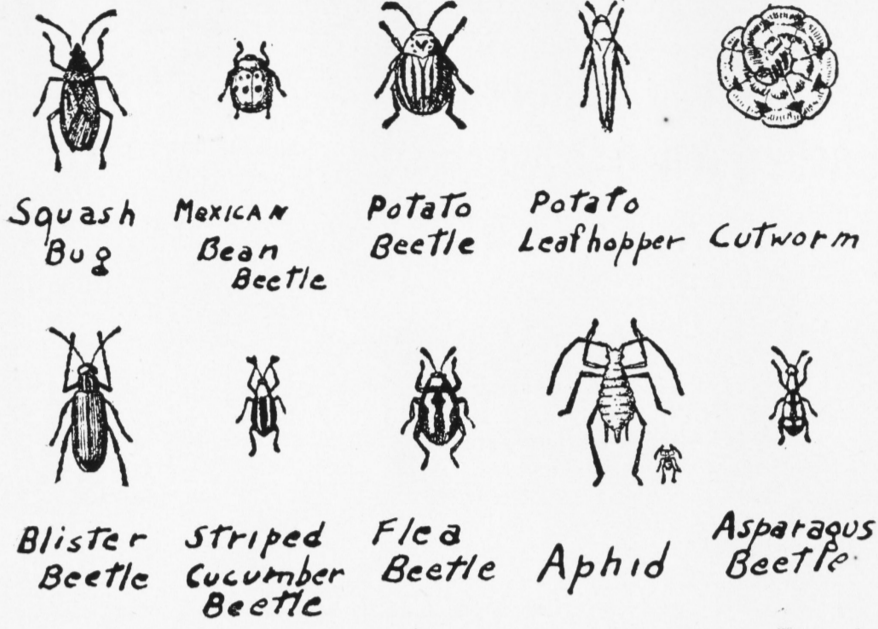 Squash
Bug
MexICAN
Bean
Beetle
Potato
Beetle
Potato
Leafhopper
Cutworm
Blister
Beetle
Striped
Cucumber
Beetle
Flea
Beetle
Aphid
Asparagus
Beetle